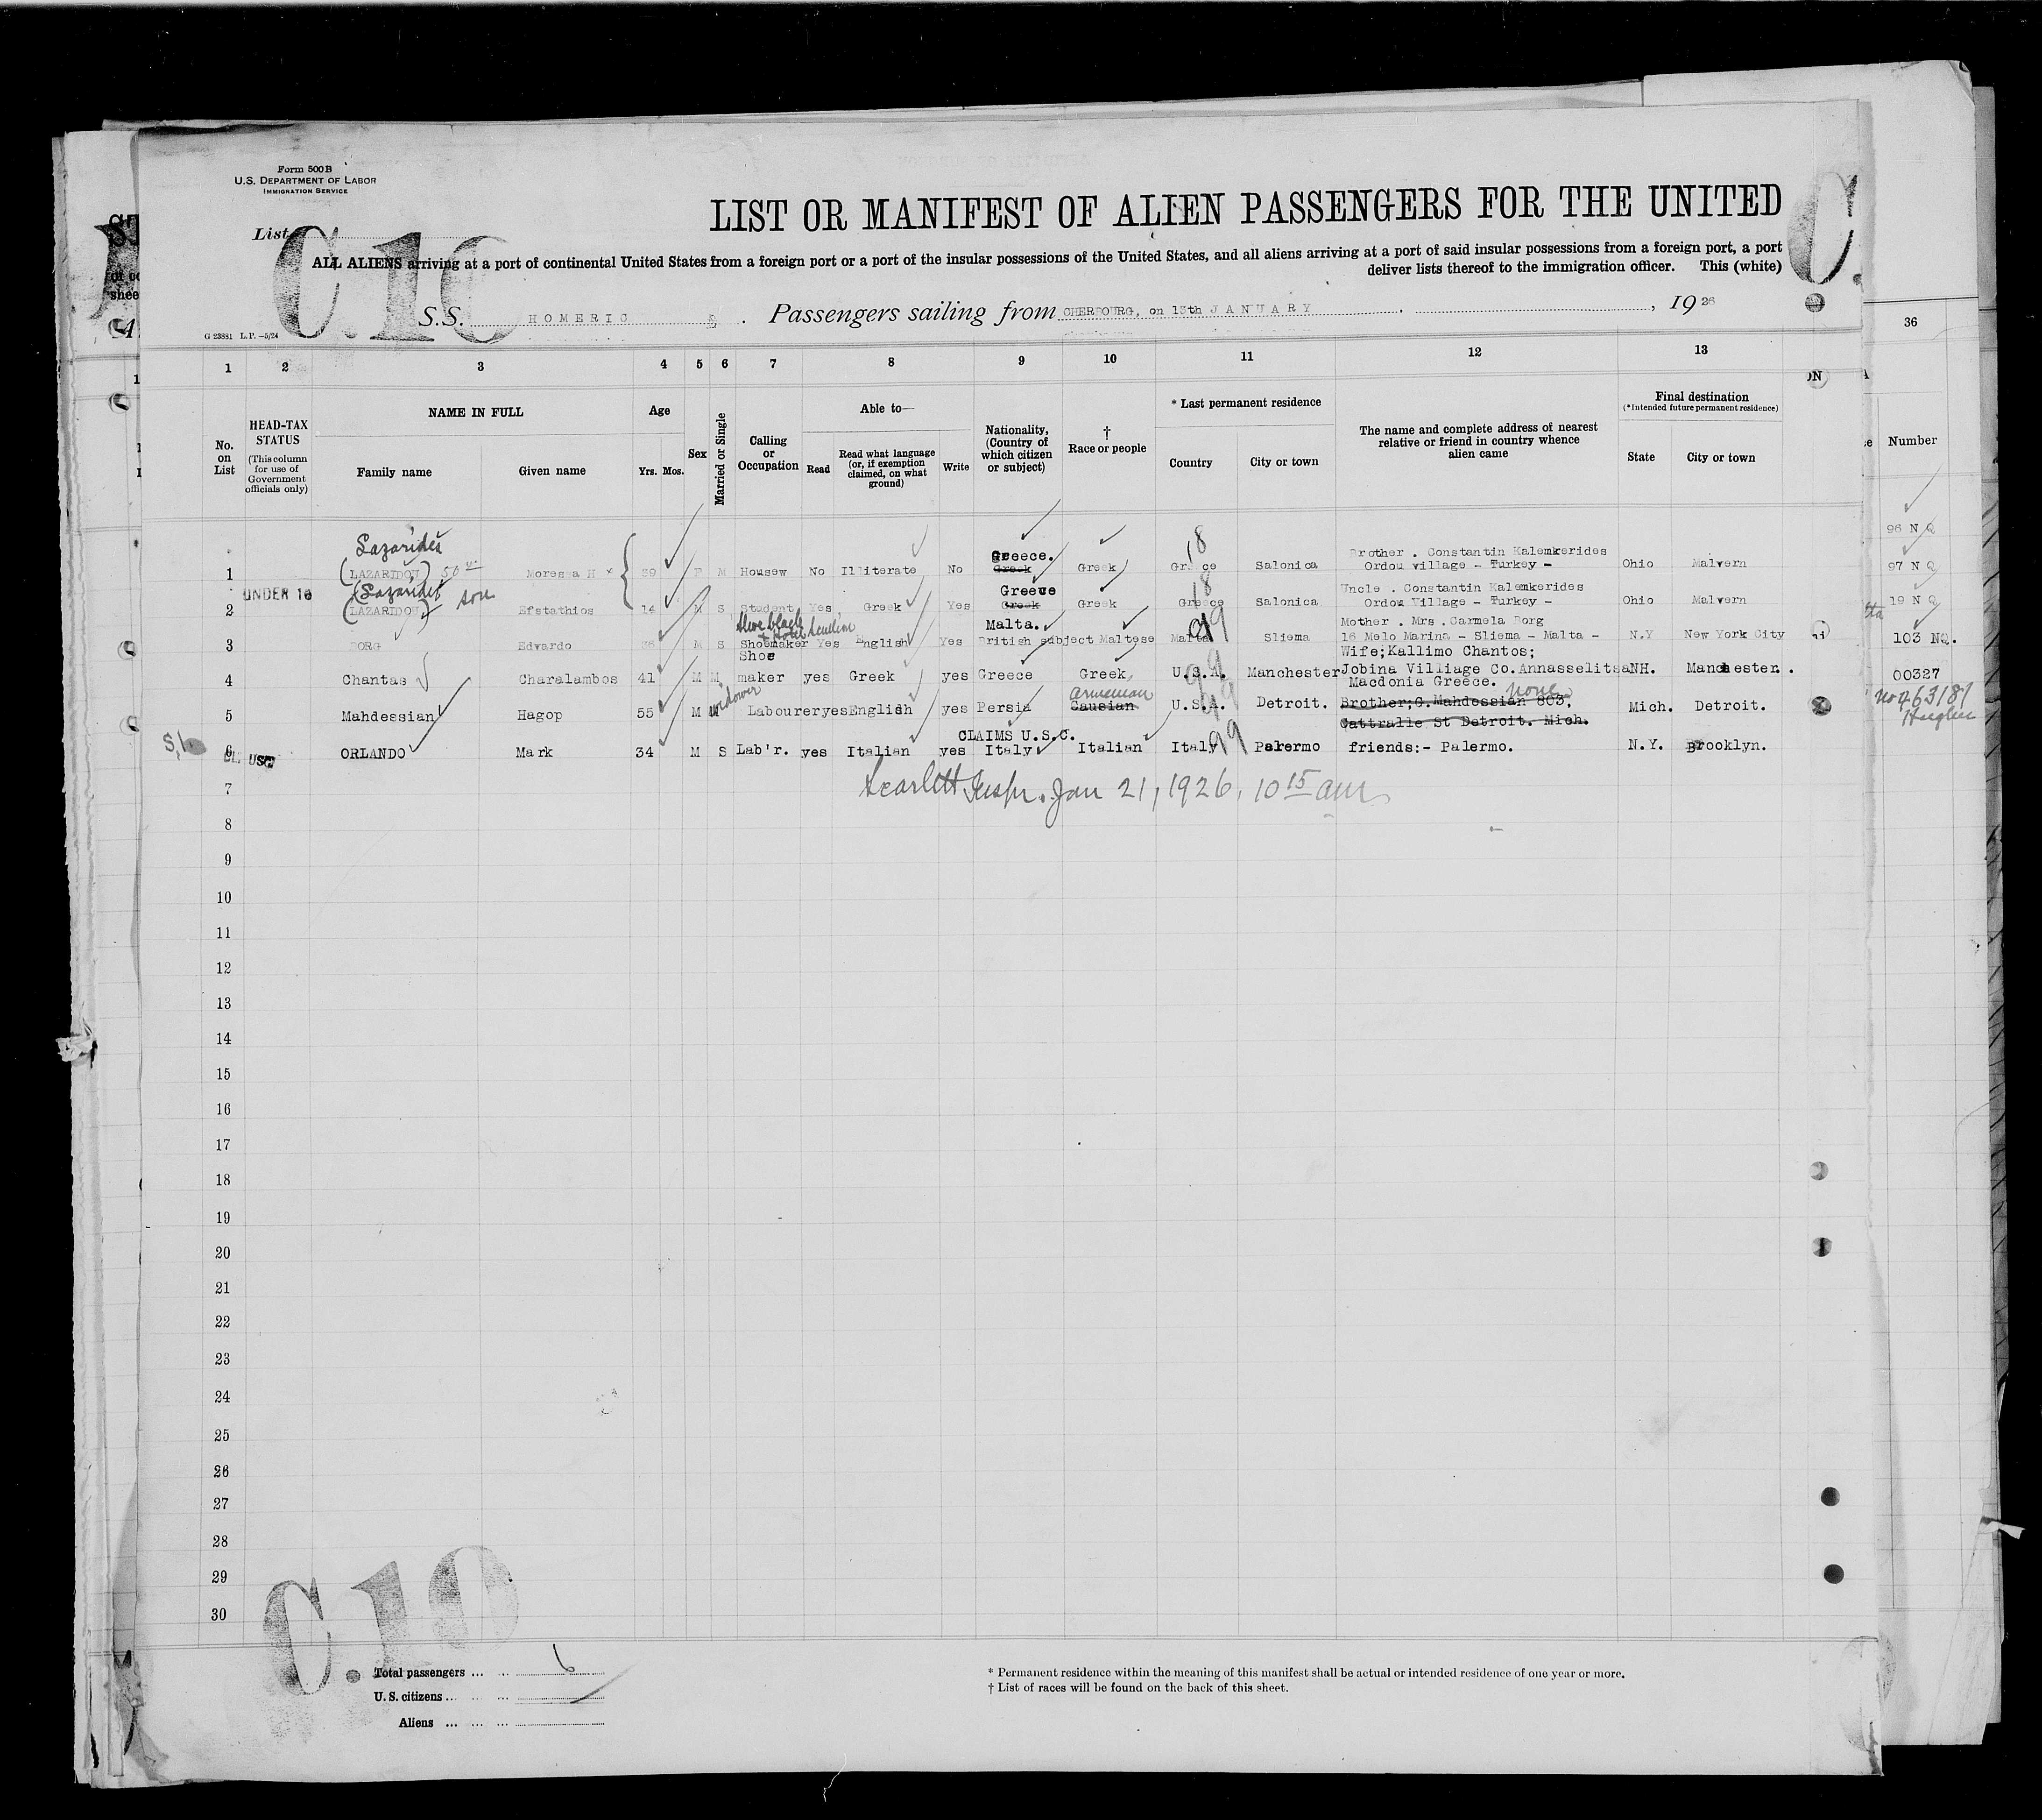 Form 500 B
U.S. DEPARTMENT OF LABOR
IMMIGRATION SERVICE
LIST OR MANIFEST OF ALIEN PASSENGERS FOR THE UNITED
List
C.10
ALL ALIENS arriving at a port of continental United States from a foreign port or a port of the insular possessions of the United States, and all aliens arriving at a port of said insular possessions from a foreign port, a port
deliver lists thereof to the immigration officer. This (white)
S.S. HOMERIC . Passengers sailing from CHERBOURG, on 13th JANUARY , 1926
G 23881 L.P. —5/24
1 2 3 4 5 6 7 8 9 10 11 12 13 36
No. on List
HEAD-TAX STATUS (This column for use of Government officials only)
NAME IN FULL
Family name Given name
Age
Yrs. Mos.
Sex
Married or Single
Calling or Occupation
Able to—
Read Read what language (or, if exemption claimed, on what ground) Write
Nationality, (Country of which citizen or subject)
† Race or people
* Last permanent residence
Country City or town
The name and complete address of nearest relative or friend in country whence alien came
Final destination
(*Intended future permanent residence)
State City or town
Number
96 N Q
Lazarides Greece. 18 Brother . Constantin Kalemkerides
1 (LAZARIDOU) Moressa H 39 F M Housew No Illiterate No Greek Greek Greece Salonica Ordou village - Turkey - Ohio Malvern 97 N Q
UNDER 16 (Lazarides son Greece 18 Uncle . Constantin Kalemkerides
2 (LAZARIDOU) Efstathios 14 M S Student Yes Greek Yes Greek Greek Greece Salonica Ordou Village - Turkey - Ohio Malvern 19 N Q
Malta. Mother . Mrs . Carmela Borg
3 BORG Edvardo 36 M S Shoemaker Yes English Yes British subject Maltese Malta 99 Sliema 16 Melo Marina - Sliema - Malta - N.Y New York City 103 NQ.
Shoe Wife;Kallimo Chantos;
4 Chantas Charalambos 41 M M maker yes Greek yes Greece Greek U.S.A. 99 Manchester Jobina Villiage Co.Annasselitsa NH. Manchester. 00327
Macdonia Greece.
widower Armenian none No 463187
5 Mahdessian Hagop 55 M Labourer yes English yes Persia Causian U.S.A. 99 Detroit. Brother;G.Mahdessian 803, Mich. Detroit.
Cattralle St Detroit. Mich.
CLAIMS U.S.C.
S.I. 6 USC ORLANDO Mark 34 M S Lab'r. yes Italian yes Italy Italian Italy 99 Palermo friends:- Palermo. N.Y. Brooklyn.
7 Scarlett Inspr. Jan 21, 1926, 10 15 am
8
9
10
11
12
13
14
15
16
17
18
19
20
21
22
23
24
25
26
27
28
29
30
C.10
Total passengers ... ... 6
U. S. citizens ... ... ...
Aliens ... ... ...
* Permanent residence within the meaning of this manifest shall be actual or intended residence of one year or more.
† List of races will be found on the back of this sheet.